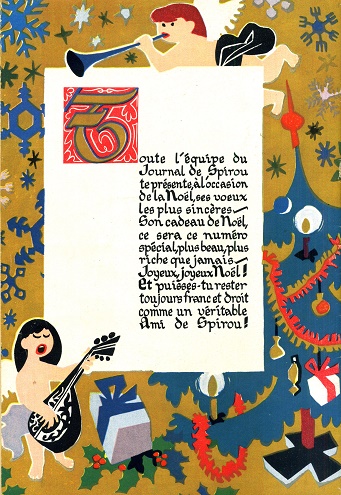 Toute l'équipe du
Journal de Spirou
te présente, à l'occasion
de la Noël, ses voeux
les plus sincères—
Son cadeau de Noël,
ce sera ce numéro
spécial, plus beau, plus
riche que jamais—
Joyeux, joyeux Noël!
Et puisses-tu rester
toujours franc et droit
comme un véritable
Ami de Spirou!